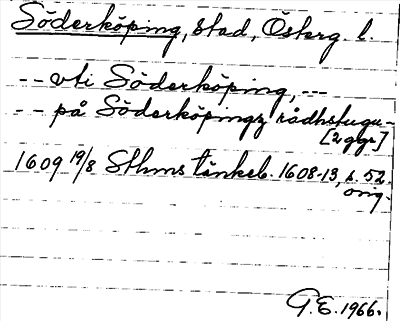 Söderköping, stad, Österg. l.
-- vti Söderköping, ---
-- på Söderköpingz rådhstugu--
[2 ggr]
1609 19/8 Sthms tänkeb. 1608-13, s. 52.
orig.
G.E. 1966.